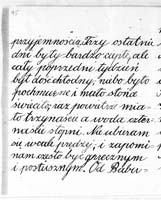 przyjemnością. Trzy ostatnie
dni były bardzo ciepłe, ale
cały poprzedni tydzień
był dość chłodny, nabo było
pochmurne i mało słońca
świeciło, raz powietrze mia-
ło trzynaście a woda czter-
naście stopni. Na ubieram
się wcale prędzej, i zapomi-
nam często być grzecznym
i posłusznym. Od Babu-